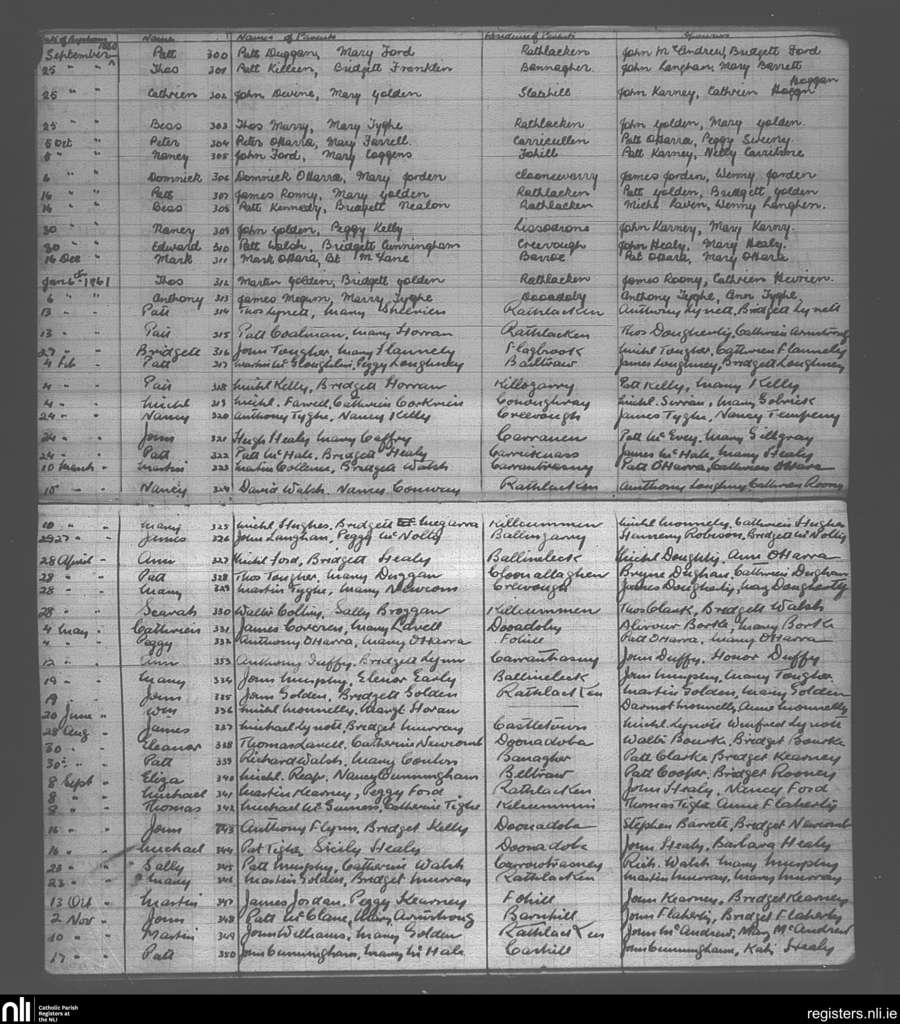 Date of Baptism 1860 Name Names of Parents Residence of Parents Sponsors
September Patt 300 Patt Duggan, Mary Ford Rathlacken John McAndrew, Bridgett Ford
25 " " Thos 301 Patt Killeen, Bridgett Franklin Bannagher John Langhan, Mary Barrett
25 " " Cathrien 302 John Devine, Mary Golden Slatehill John Karney, Cathrien Hoggan
25 " " Beas 303 Thos Marry, Mary Tyghe Rathlacken John Golden, Mary Golden.
5 Oct " Peter 304 Peter OHarra, Mary Farrell Carricullen Patt OHarra, Peggy Sweeny
" " Nancy 305 John Ford, Mary Coggens Fohill Patt Karney, Nelly
6 " " Domnick 306 Domnick OHarra, Mary Jorden James Jorden, Wenny Jorden
16 " " Patt 307 James Ronny, Mary Golden Rathlacken Patt Golden, Bridgett Golden
16 " " Beas 308 Patt Kennedy, Bridgett Nealon Rathlacken Michl Laven, Wenny Langhen.
30 " " Nancy 309 John Golden, Peggy Kelly Lissadrone John Karney, Mary Karny.
30 " " Edward 310 Patt Walsh, Bridgett Cunningham Creevough John Healy, Mary Healy.
16 Dec " Mark 311 Mark OHara, Bt McLane Barroe Pat OHara, Mary OHara
Jan 6th 1861 Thos 312 Martin Golden, Bridgett Golden Rathlacken James Roony, Cathrien
6 " " Anthony 313 James Megurn, Marry Tyghe Dooadoby Anthony Tyghe, Ann Tyghe,
13 " " Patt 314 Thos Lynett, Mary Rathlacken Anthony Lynett, Bridgett Lynett
13 " " Patt 315 Patt Coalman, Mary Horran Rathlacken Thos Dougherty, Cathrein Armstrong
27 " " Bridgett 316 John Tougher, Mary Flannely Flaybrook Michl Tougher, Cathrien Flannely
4 Feb " Patt 317 Martin McGloughlin, Peggy Loughney Balltraw James Loughney, Bridgett Loughney
4 " " Patt 318 Michl Kelly, Bridgett Horran Killogarry Patt Kelly, Mary Kelly
4 " " Michl 319 Michl. Farrell, Cathrein Corkrein Conoughray Michl. , Mary
24 " " Nancy 320 Anthony Tyghe, Nancy Kelly Creevough James Tyghe, Nancy Tempeny
24 " " John 321 Hugh Healy Mary Caffry Carranen Patt McEvey, Mary Gillgray
24 " " Patt 322 Patt McHale, Bridgett Healy Carricknass James McHale, Mary Healy
10 March " Martin 323 Martin Collens, Bridgett Walsh Patt OHarra, Cathrien OHara
15 " " Nancy 324 David Walsh. Nancy Conway Rathlacken Anthony Loughny, Cathrien Roony
10 " " Mary 325 Michl Hughes, Bridgett Megarra Killcummen Michl Monnelly, Cathrein Hughes
2927 " James 326 John Langhan, Peggy McNolty Ballingarry Robeson, Bridgett McNolty
28 April " Ann 327 Michl Ford, Bridgett Healy Ballineleck Michl Doughty, Ann OHarra
28 " " Patt 328 Thos Tougher, Mary Duggan Cloonallaghen Bryne Deighan, Cathrein Deighan
28 " " Mary 329 Martin Tyghe, Mary Newcons Creevough James Dougherty, May Dougherty
28 " " Searah 330 Waltie Collins, Sally Broggan Killcummen Thos Clark, Bridgett Walsh
4 May " Cathrein 331 James Corcren, Mary Lavell Dooadoby Bortk, Mary Bortk
4 " " Peggy 332 Anthony OHarra, Mary OHarra Fohill Patt OHarra, Mary OHarra
12 " " Ann 333 Anthony Duffy, Bridgett Lynn Carranthasny John Duffy, Honor Duffy
19 " " Mary 334 John Murphy, Elenor Early Ballineleck John Murphy, Mary Tougher
19 " " John 335 John Golden, Bridgett Golden Rathlacken Martin Golden, Mary Golden
20 June " Wm 336 Michl Monnelly, Margt Horan Darmot Monnelly, Anne Monnelly
28 Aug " James 337 Michael Lynott, Bridget Murray Castletown Michl Lynott Winifred Lynott
30 " " Eleanor 338 Thomas Lavell, Catherine Newcomb Doonadoba Waltr Bourke, Bridget Bourke
30 " " Patt 339 Richard Walsh, Mary Conlon Banagher Patt Clarke, Bridget Kearney
8 Sept " Eliza 340 Michl. Reap, Nancy Cunningham Belltraw Patt Cooper, Bridget Rooney
8 " " Michael 341 Martin Kearney, Peggy Ford Rathlacken John Healy, Nancy Ford
8 " " Thomas 342 Michael McGuiness, Catherine Tighe Kilcummin Thomas Tighe Anne Flaherty
16 " " John 343 Anthony Flynn, Bridget Kelly Doonadoba Stephen Barrett, Bridget Newcomb
16 " " Michael 344 Pat Tighe, Sicily Healy Doonadoba John Healy, Barbara Healy
23 " " Sally 345 Patt Murphy, Catherine Walsh Carrowtrasney Rich. Walsh Mary Murphy
23 " " Mary 346 Martin Golden, Bridget Murray Rathlacken Martin Murray, Mary Murray
13 Oct " Martin 347 James Jordan, Peggy Kearney Fohill John Kearney, Bridget Kearney
2 Nov " John 348 Patt McClane, Mary Armstrong Barnhill John Flaherty, Bridget Flaherty
10 " " Martin 349 John Williams, Mary Golden Rathlacken John McAndrew, May McAndrew
17 " " Patt 350 John Cunningham, Mary McHale Carhill John Cunningham, Kate Healy
nli Catholic Parish Registers at the NLI
registers.nli.ie